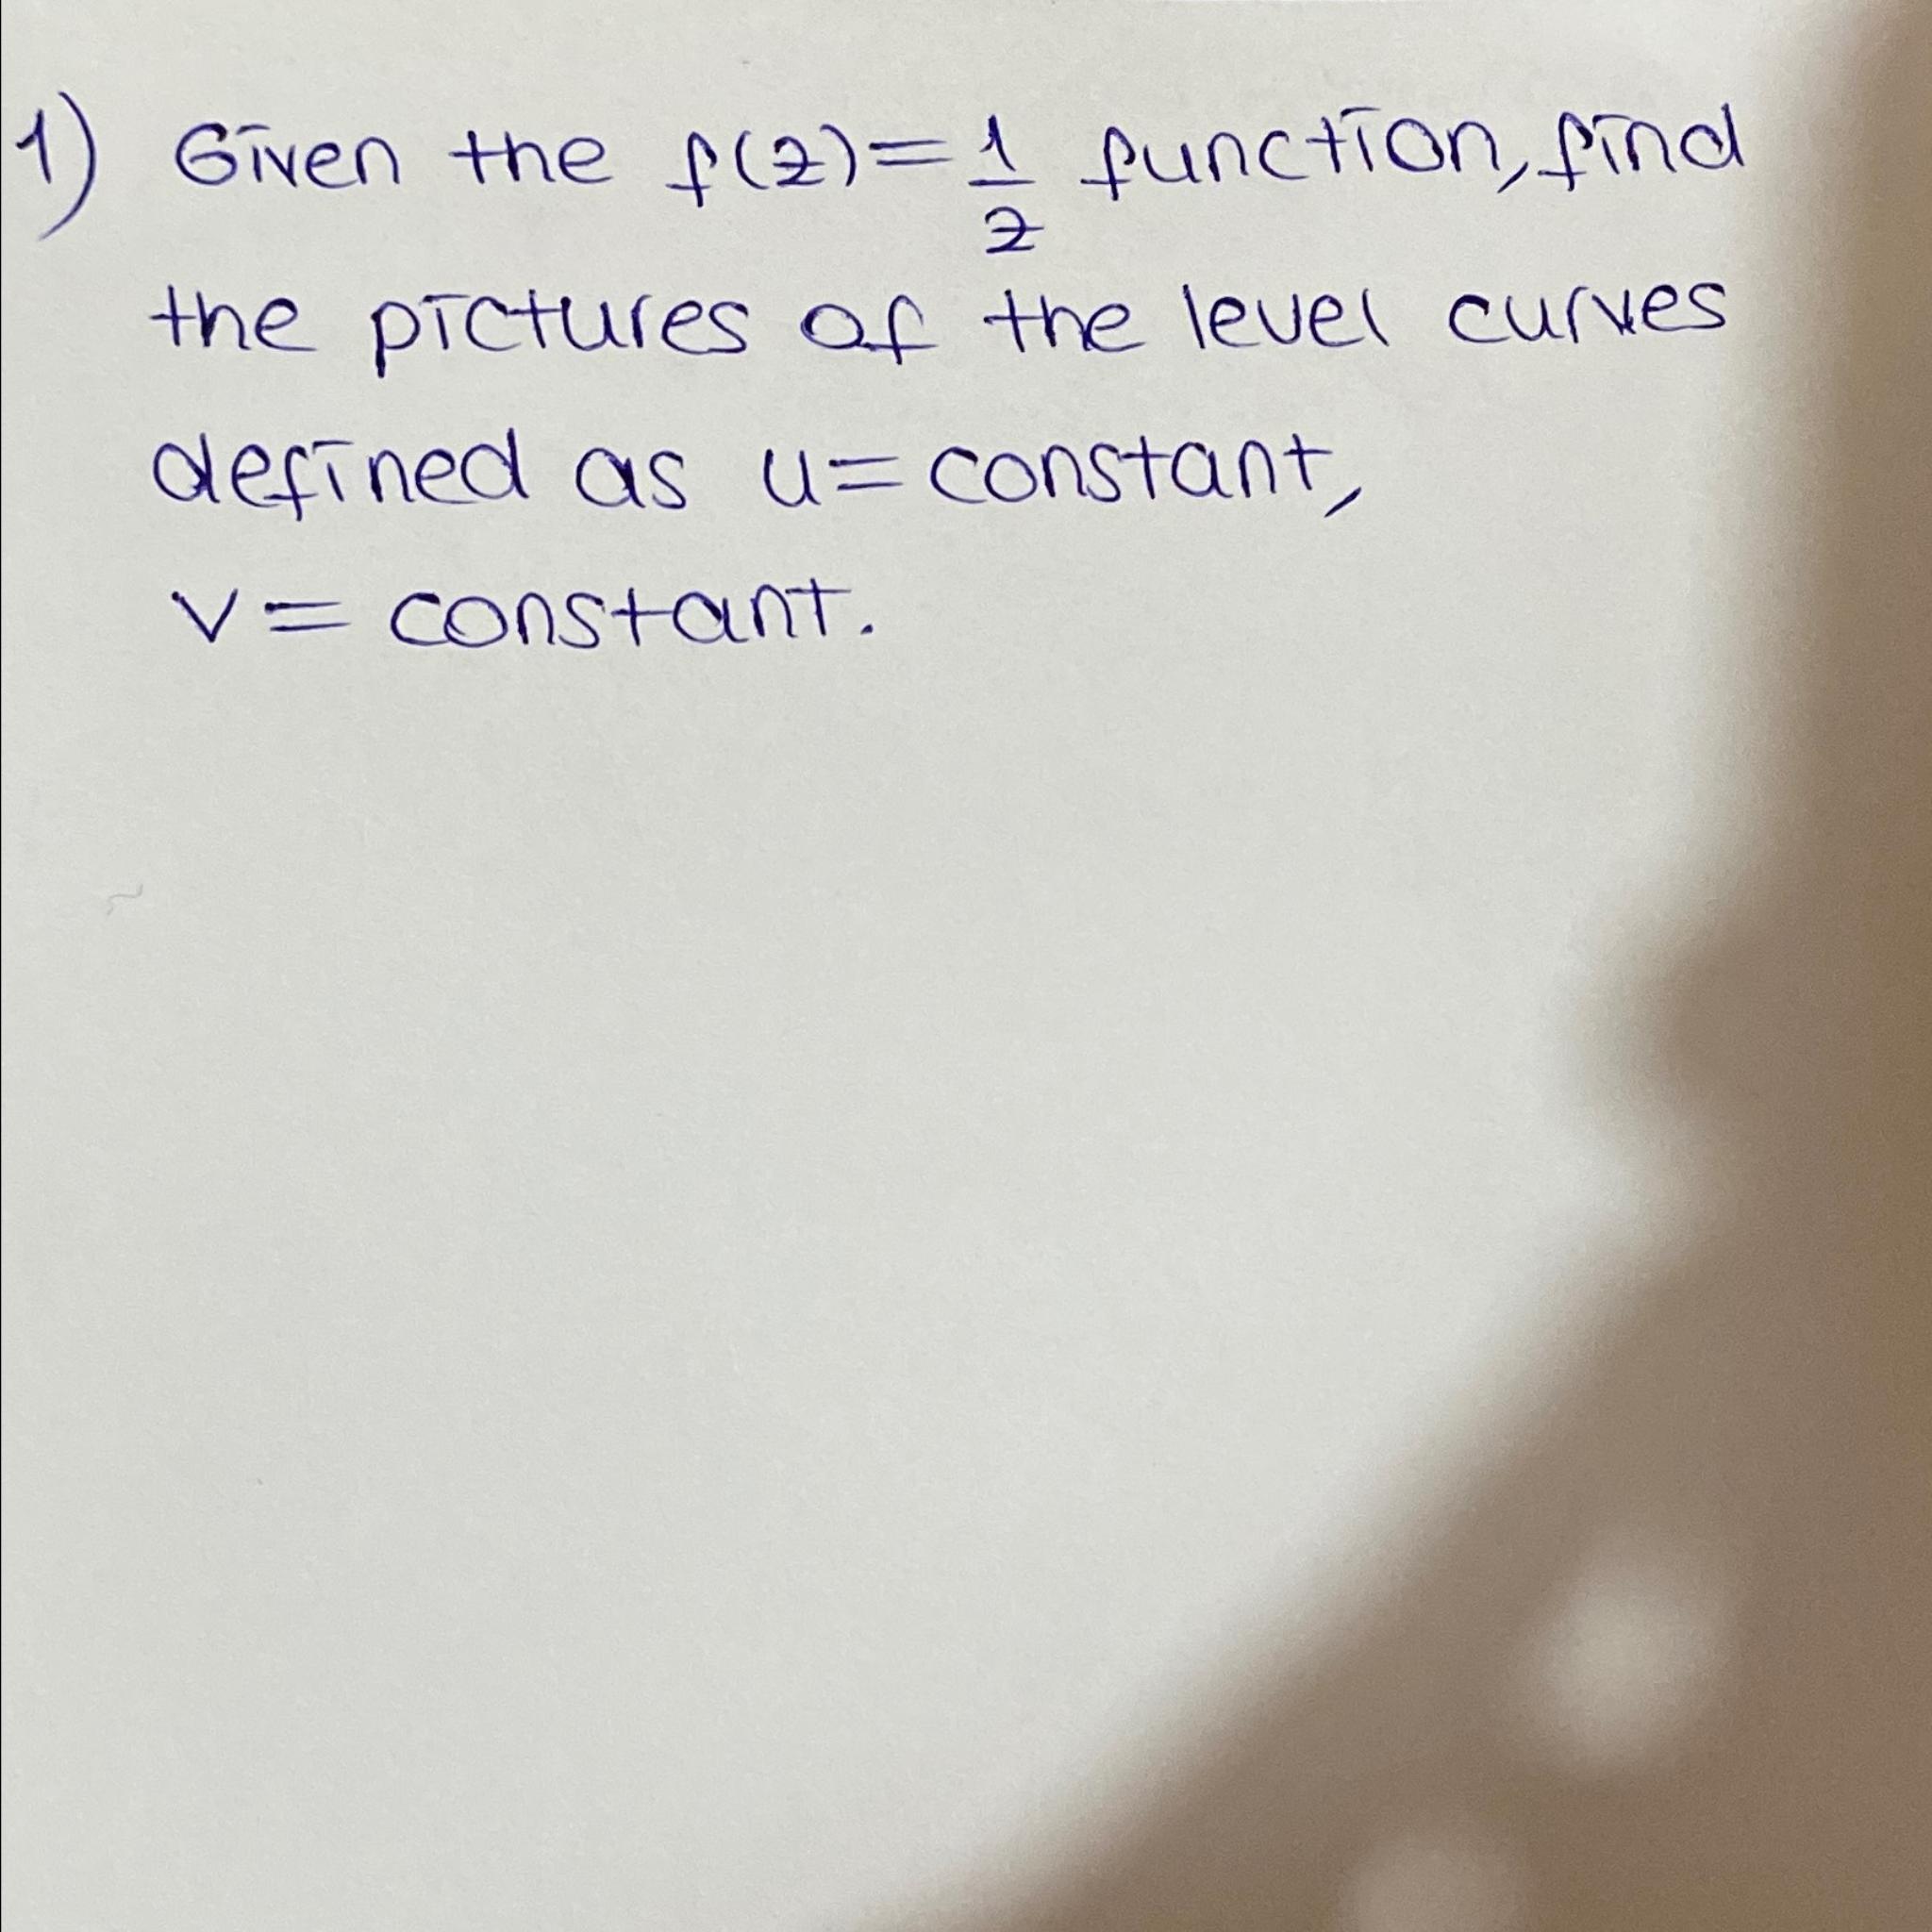 1) Given the f(z)=1/z function, find
the pictures of the level curves
defined as u=constant,
v= constant.